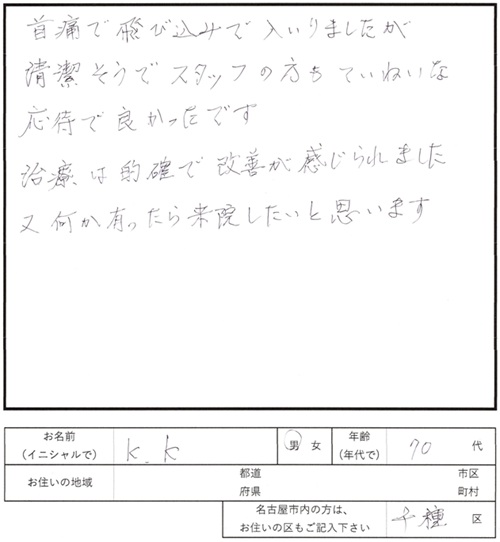 首痛で飛び込みで入いりましたが
清潔そうでスタッフの方もていねいな
応待で良かったです
治療は的確で改善が感じられました
又何か有ったら来院したいと思います
お名前
(イニシャルで)
K.K
男 女
年齢
(年代で)
70 代
お住いの地域
都道
府県
市区
町村
名古屋市内の方は、
お住いの区もご記入下さい
千種 区